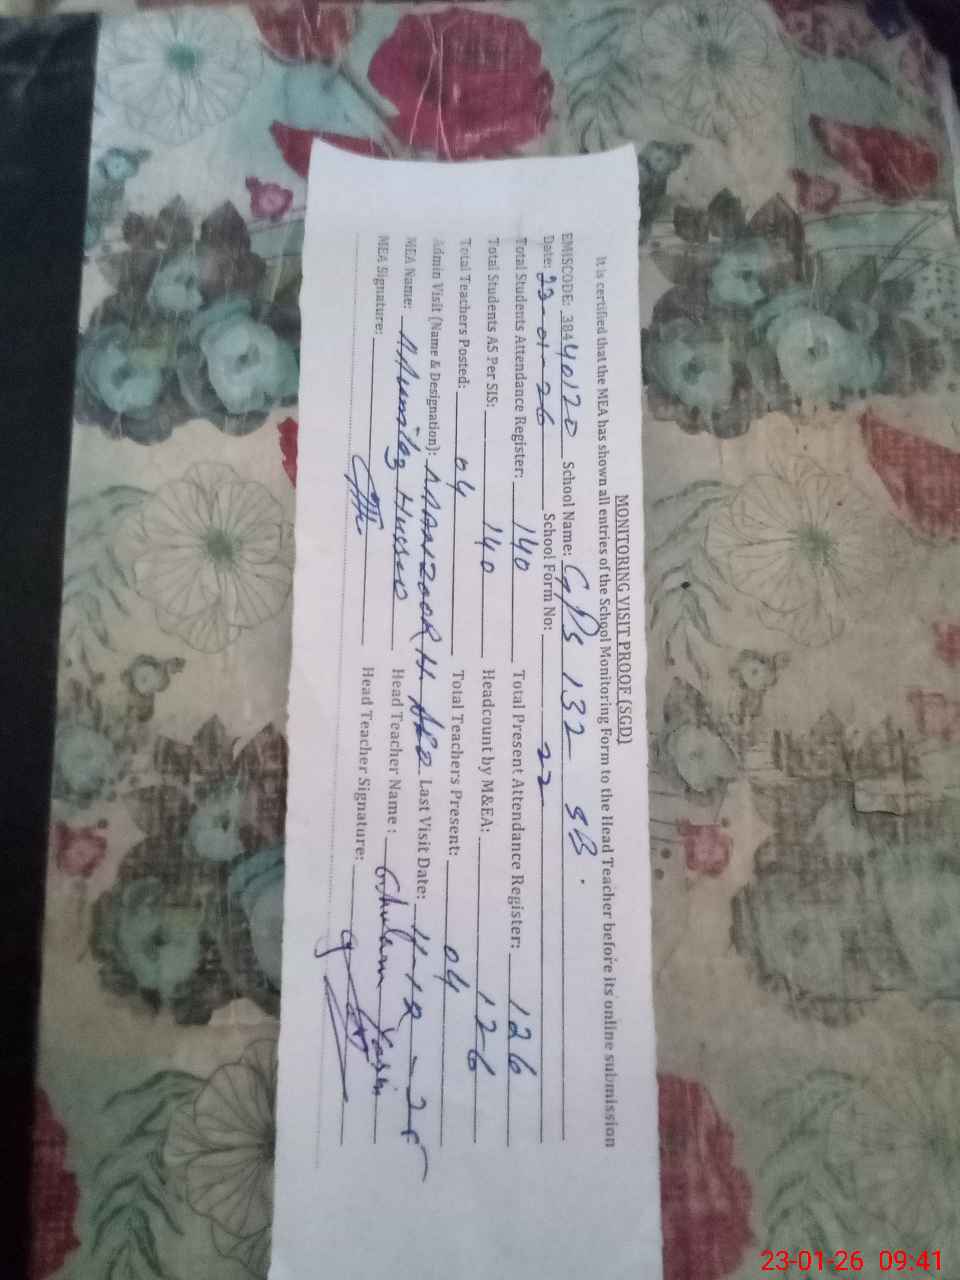 MONITORING VISIT PROOF (SGD)
It is certified that the MEA has shown all entries of the School Monitoring Form to the Head Teacher before its online submission
EMISCODE: 38440120 School Name: GPS 132 SB.
Date: 23-01-26 School Form No: 22
Total Students Attendance Register: 140 Total Present Attendance Register: 126
Total Students AS Per SIS: 140 Headcount by M&EA: 126
Total Teachers Posted: 04 Total Teachers Present: 04
Admin Visit (Name & Designation): MANZOOR H. Last Visit Date: 11-12-25
MEA Name: Head Teacher Name : Ghulam Yasin
MEA Signature: Head Teacher Signature:
23-01-26 09:41